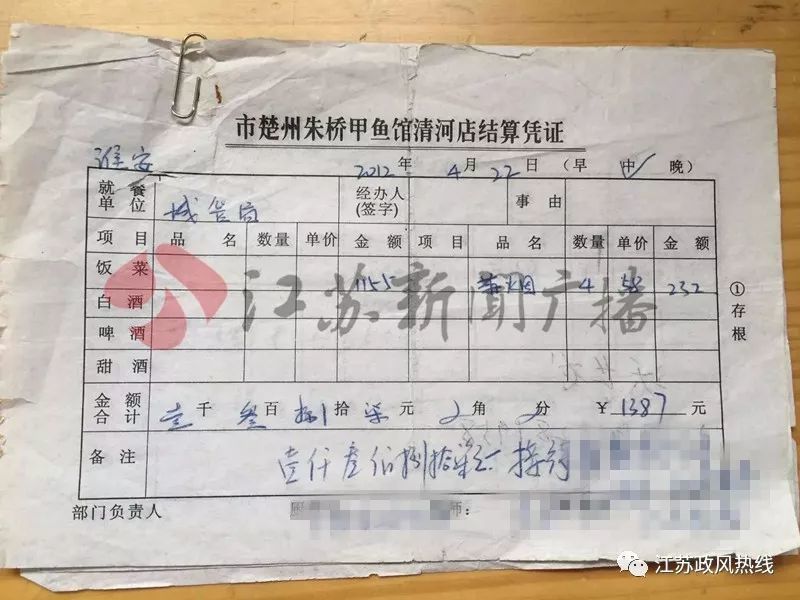 市楚州朱桥甲鱼馆清河店结算凭证
淮安 2012年4月22日（早 中✓ 晚）
就餐单位 城管局 经办人(签字) 事由
项目 品名 数量 单价 金额 项目 品名 数量 单价 金额
饭菜 1155 4 58 232
白酒
啤酒
甜酒
①存根
金额合计 壹千叁百捌拾柒元 角 分 ¥1387元
备注 壹仟叁佰捌拾柒元 接待
部门负责人 师：
江苏新闻广播
江苏政风热线